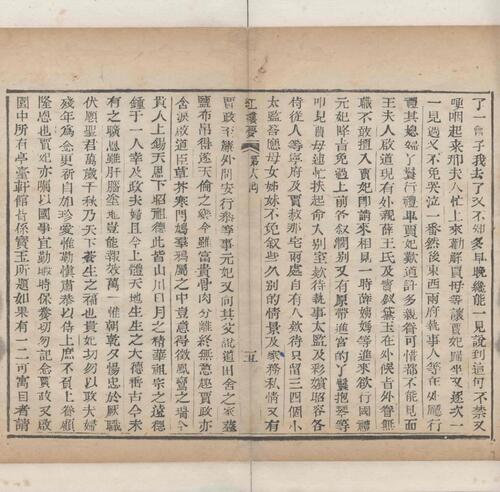 了一會子我去了又不知多早晚纔能一見說到這句不禁又
哽咽起來邢夫人忙上來勸解賈母等讓賈妃歸坐又逐次一
一見過又不免哭泣一番然後東西兩府執事人等在外廳行
禮其媳婦丫鬟行禮畢賈妃歎道許多親眷可惜都不能見面
王夫人啟道現有外親薛王氏及寶釵黛玉在外候旨外眷無
職不敢擅入賈妃即請來相見一時薛姨媽等進來欲行國禮
元妃降旨免過上前各敘闊別又有原帶進宮的丫鬟抱琴等
叩見賈母連忙扶起命人別室款待執事太監及彩嬪昭容各
侍從人等寧府及賈赦那宅兩處自有人款待只留三四個小
太監答應母女姊妹不免敘些久別的情景及家務私情又有
紅樓夢 第八回 五
賈政至簾外問安行參等事元妃又向其父說道田舍之家虀
鹽布帛得遂天倫之樂今雖富貴骨肉分離終無意趣賈政亦
含淚啟道臣草芥寒門鳩羣鴉屬之中豈意得徵鳳鸞之瑞今
貴人上錫天恩下昭祖德此皆山川日月之精華祖宗之遠德
鍾于一人幸及政夫婦且今上體天地生生之大德垂古今未
有之曠恩雖肝腦塗地豈能報效萬一惟朝乾夕惕忠於厥職
伏願聖君萬歲千秋乃天下蒼生之福也貴妃切勿以政夫婦
殘年為念更祈自加珍愛惟勤慎肅恭以侍上庶不負上眷顧
隆恩也賈妃亦囑以國事宜勤暇時保養切勿記念賈政又啟
園中所有亭臺軒館皆係寶玉所題如果有一二可寓目者請